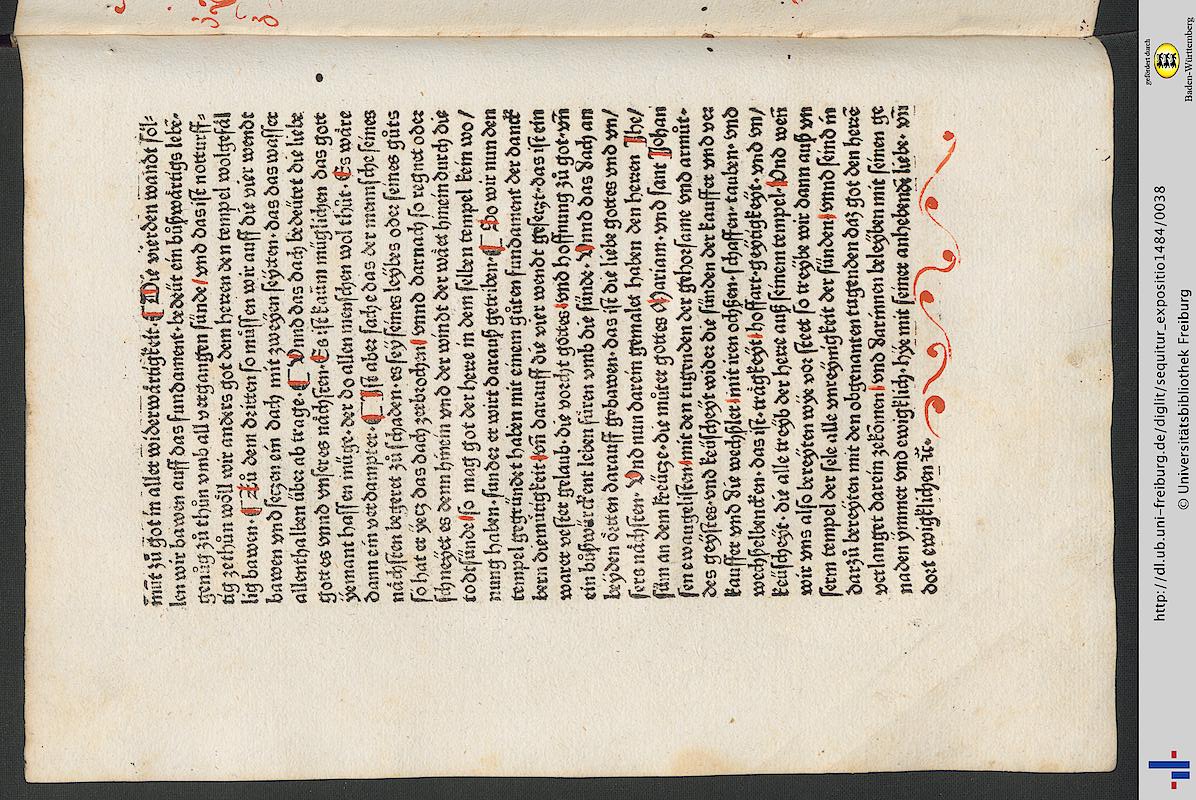 müt zů got in aller widerwärtigkeit· ¶ Die vierden wandt söl-
len wir bawen auff das fundament· bedeüt ein bůßwärtigs lebē·
genůg zů thůn vmb all vergangen sünde/ vnd das ist notturff-
tig zethůn wöll wir anders got dem herren den tempel wolgefäl
lig bawen· ¶ Zů dem dritten so müssen wir auff die vier wende
bawen vnd setzen ein dach mit zweyen seytten· das das wasser
allenthalben über ab trage· ¶ Vnnd das dach bedeütet die liebe
gottes vnnd vnseres nächsten· Es ist kaum müglichen das gott
yemant hassen müge· der do allen menschen wol thůt· Es wäre
dann ein verdampter· ¶ Ist aber sache das der mensche seines
nächsten begeret zů schaden· es sey seines leybes oder seines gůts
so hat er yetz das dach zerbrochen/ vnnd darnach so regnet oder
schneyet es denn hinein vnd der windt der wäet hinein durch die
todtsünde/ so mag got der herre in dem selben tempel kein wo/
nung haben· sunder er wirt darauß getriben· ¶ So wir nun den
tempel gegründet haben mit einem gůten fundament der danck
bern diemütigkeit/ vñ darauff die vier wendt gesetzt· das ist ein
warer vester gelaub· die vorcht gottes/ vnd hoffnung zů got· vñ
ein bůßwürckent leben füren vmb die sünde· Vnnd das dach an
beyden örtten darauff gebawen· das ist die liebe gottes vnd vn/
sers nächsten· Vnd nun darein gemalet haben den herren Jhe/
sum an dem kreütze· die můter gottes Mariam· vnd sant Johan
sen ewangelisten/ mit den tugenden der gehorsame vnd armůt·
des geystes· vnd keüscheyt wider die sünden der kauffer vnd ver
kauffer vnd die wechßler/ mit iren ochßen· schaffen· tauben· vnd
wechßelbencken· das ist· trägkeyt/ hoffart· geytigkeyt· vnd vn/
keüscheyt· die alle treyb der herre auß seinem tempel· Vnd weñ
wir vns also bereyten wye vor steet so treybe wir dann auß vn
serm tempel der sele alle vnreynigkeit der sünden/ vnnd seind in
darzů bereyten mit den obgenanten tugenden daz got den herre
verlanget darein zekömen/ vnd darinnen beleyben mit seinen ge
naden ymmer vnd ewigklich· hye mit seiner anhebende liebe· vñ
dort ewigklichen ꝛc·
gefördert durch
Baden-Württemberg
http://dl.ub.uni-freiburg.de/diglit/sequitur_expositio1484/0038
© Universitätsbibliothek Freiburg